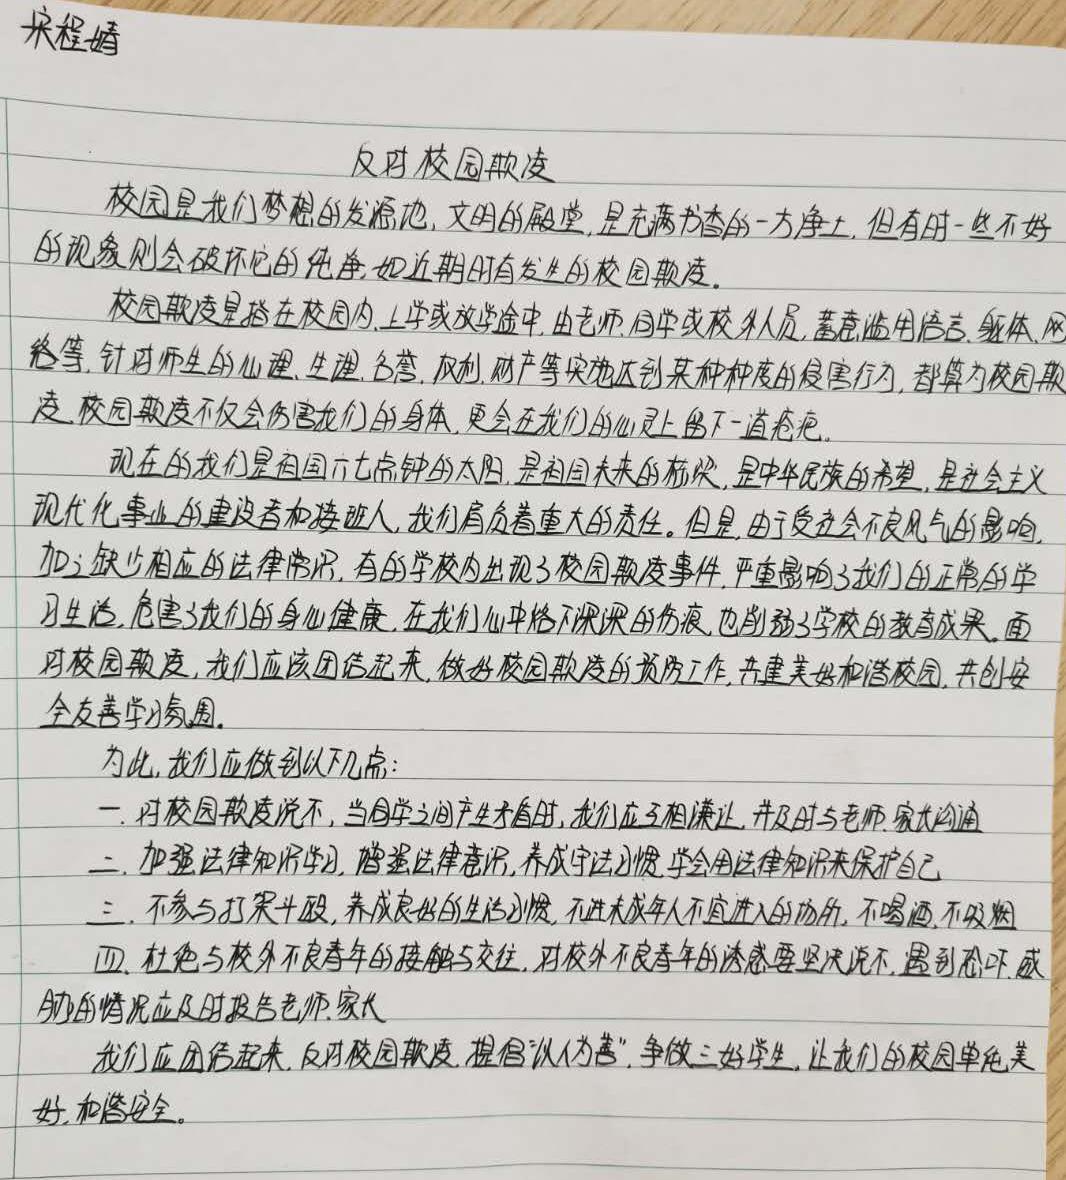 宋程婧
反对校园欺凌
校园是我们梦想的发源地,文明的殿堂,是充满书香的一方净土,但有时一些不好
的现象则会破坏它的纯净,如近期时有发生的校园欺凌。
校园欺凌是指在校园内、上学或放学途中,由老师、同学或校外人员,蓄意滥用语言、躯体、网
络等,针对师生的心理、生理、名誉、权利、财产等实施达到某种程度的侵害行为,都算为校园欺
凌,校园欺凌不仅会伤害我们的身体,更会在我们的心灵上留下一道疮疤。
现在的我们是祖国六七点钟的太阳,是祖国未来的栋梁,是中华民族的希望,是社会主义
现代化事业的建设者和接班人,我们肩负着重大的责任。但是,由于受社会不良风气的影响,
加之缺少相应的法律常识,有的学校内出现了校园欺凌事件,严重影响了我们的正常的学
习生活,危害了我们的身心健康,在我们心中烙下深深的伤痕,也削弱了学校的教育成果。面
对校园欺凌,我们应该团结起来,做好校园欺凌的预防工作,共建美好和谐校园,共创安
全友善学习氛围。
为此,我们应做到以下几点:
一.对校园欺凌说不,当同学之间产生矛盾时,我们应互相谦让,并及时与老师、家长沟通
二.加强法律知识学习,增强法律意识,养成守法习惯,学会用法律知识来保护自己
三.不参与打架斗殴,养成良好的生活习惯,不进未成年人不宜进入的场所,不喝酒,不吸烟
四.杜绝与校外不良青年的接触与交往,对校外不良青年的诱惑要坚决说不,遇到恐吓、威
胁的情况应及时报告老师、家长
我们应团结起来,反对校园欺凌,提倡“以人为善”,争做三好学生,让我们的校园单纯美
好,和谐安全。